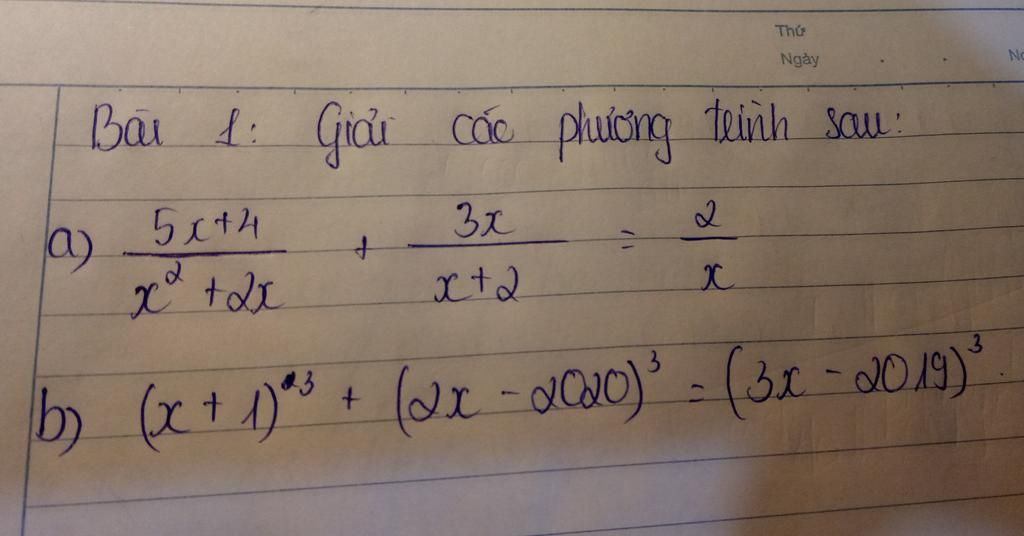 Thứ
Ngày
Bài 1: Giải các phương trình sau:
a) \frac{5x+4}{x^2+2x} + \frac{3x}{x+2} = \frac{2}{x}
b) (x+1)^3 + (2x-2020)^3 = (3x-2019)^3.